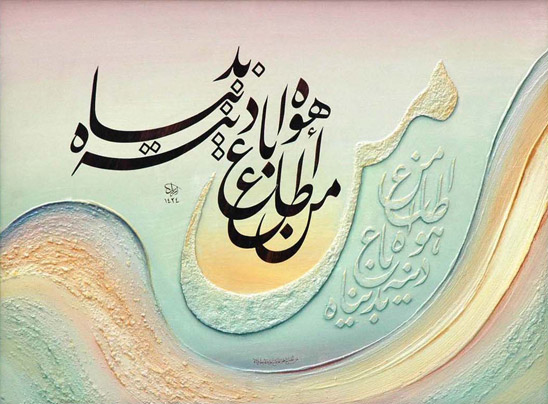 من أطاع
هواه باع
دينه بدنياه
١٤٢٤
من
من أطاع
هواه باع
دينه بدنياه